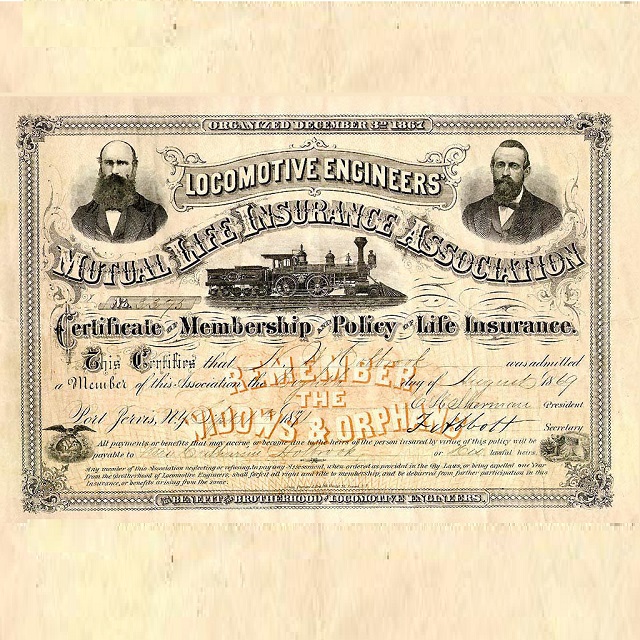 ORGANIZED DECEMBER 3RD 1867
LOCOMOTIVE ENGINEERS'
MUTUAL LIFE INSURANCE ASSOCIATION
Certificate OF Membership AND Policy OF Life Insurance.
This Certifies that was admitted
a Member of this Association the day of August 1869
REMEMBER
THE
WIDOWS & ORPHANS
President
Port Jervis, N.Y. Secretary
All payments or benefits that may accrue or become due to the heirs of the person insured by virtue of this policy will be
payable to Mrs Catherine or lawful heirs.
Any member of this Association neglecting or refusing to pay any Assessment, when ordered as provided in the By-Laws, or being expelled one Year
from the Brotherhood of Locomotive Engineers, shall forfeit all right and title to membership, and be debarred from further participation in this
Insurance, or benefits arising from the same.
BENEFIT BROTHERHOOD OF LOCOMOTIVE ENGINEERS.